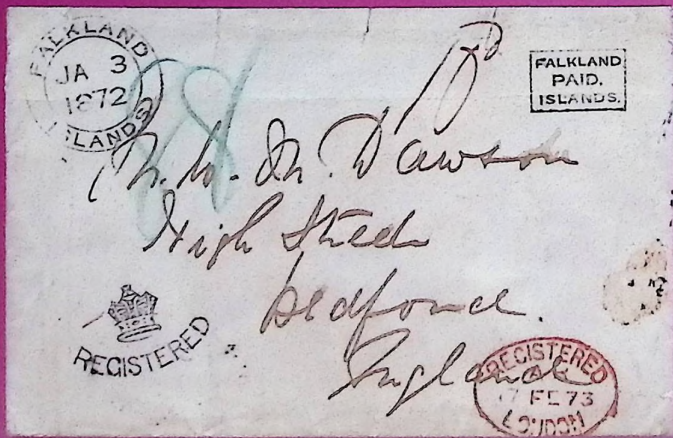 FALKLAND
JA 3
1872
ISLANDS
FALKLAND
PAID.
ISLANDS.
Dawson
High Street
Bedford.
England
REGISTERED
REGISTERED
17 FE 73
LONDON